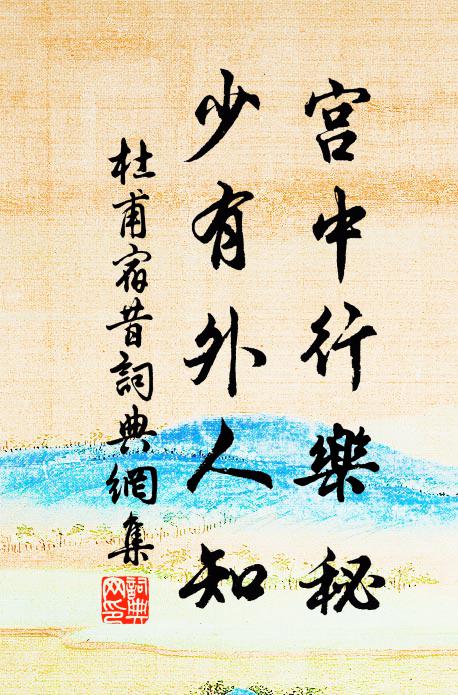 宫中行樂秘
少有外人知
杜甫宿昔詞典網集
詞典